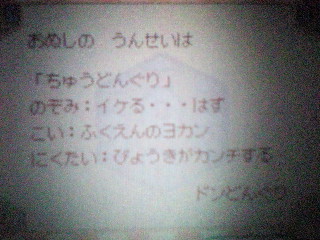 おぬしの うんせいは
「ちゅうどんぐり」
のぞみ：イケる・・・はず
こい：ふくえんのヨカン
にくたい：びょうきがカンチする
ドンどんぐり